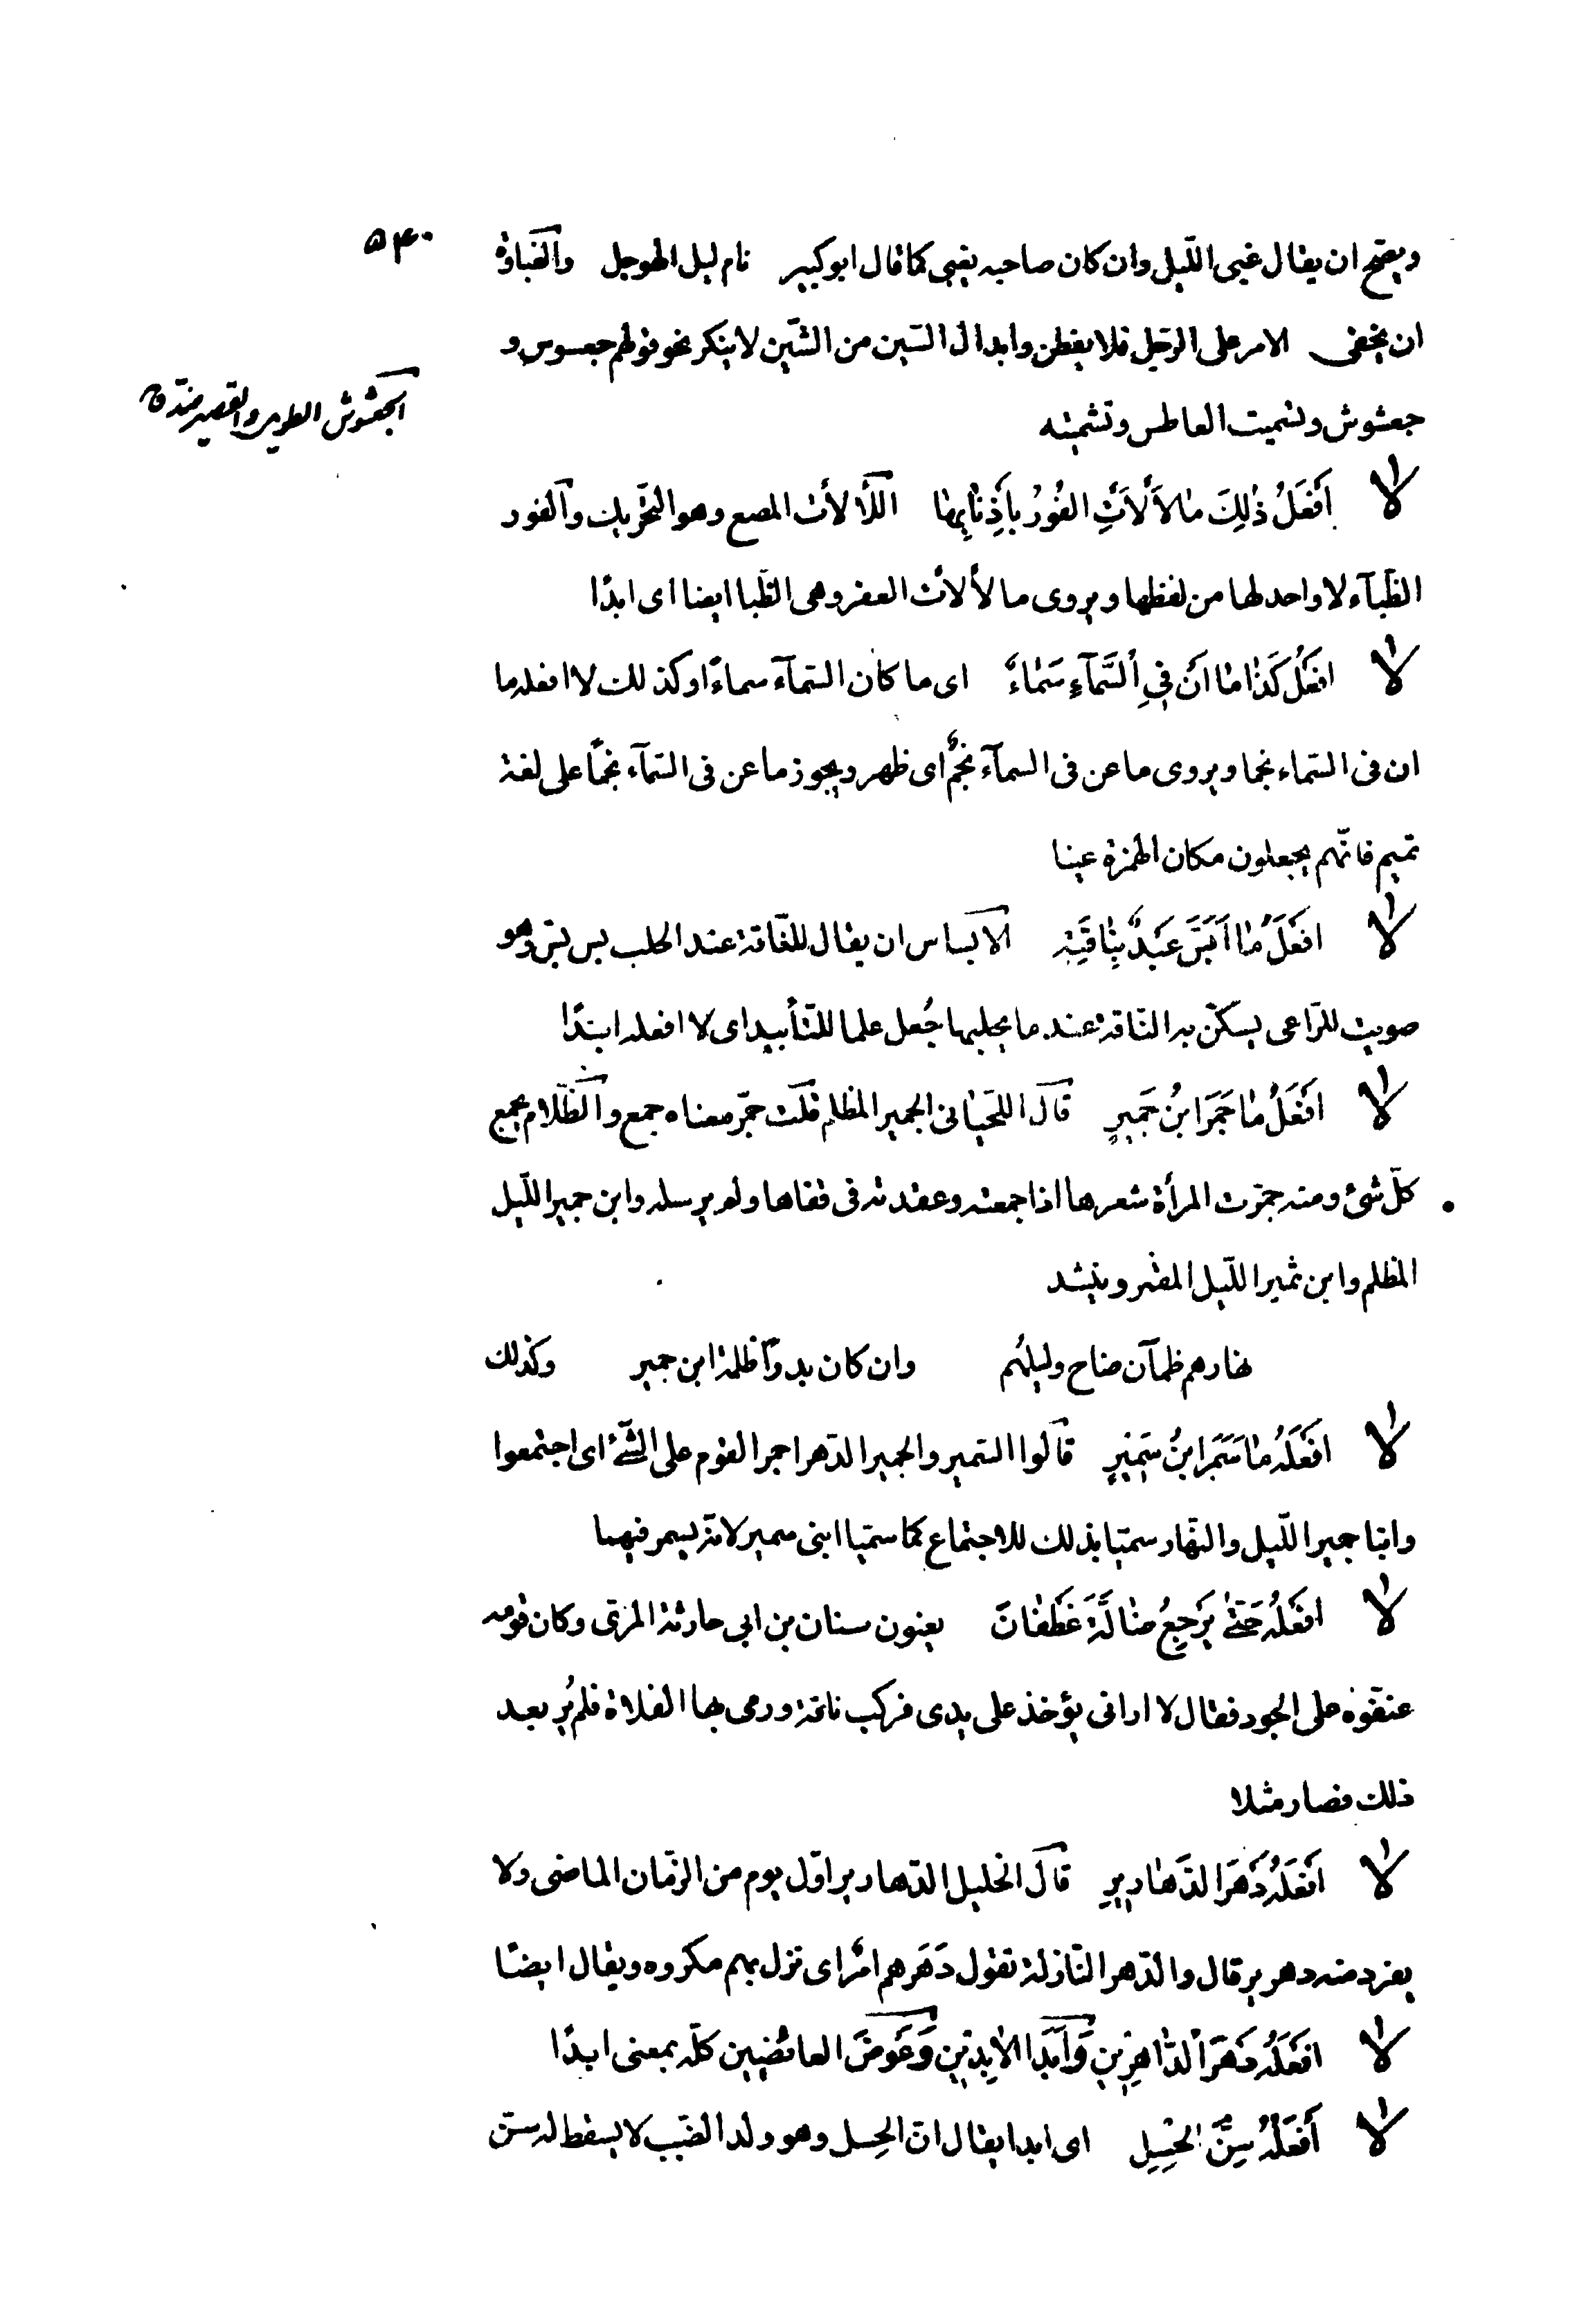 ۵۴۰
ويصح ان يقال غبى الليل وان كان صاحبه يغبى كما قال ابو كبير نام ليل الهوجل والغباوة
ان يخفى الامر على الرّجل فلا يفطن وابدال السّين من الشّين لا ينكر نحو قولهم جعسوس و
الجعشوش الطويل والقصير ضدّ ق
جعشوش وتسميت العاطس وتشميته
لا اَفْعَلُ ذٰلِكَ مٰا لَأْلَأَتِ الفُورُ بِأَذْنٰابِهٰا اللألأت المصع وهو التّحريك والفور
الظّبآء لا واحد لها من لفظها ويروى ما لألأت العفر وهى الظّبا ايضا اى ابدًا
لا افْعَلُ كَذٰا مٰا انَّ فِى السَّمآءِ سَمٰاءً اى ما كان السّمآء سماءً او كذلك لا افعله ما
ان فى السّماء نجما ويروى ما عن فى السمآء نجمٌ اى ظهر ويجوز ما عن فى السّمآء نجمًا على لغة
تميم فانّهم يجعلون مكان الهمزة عينا
لا افْعَلُهُ مٰا اَبَسَّ عَبْدٌ بِنٰاقَتِهِ الابساس ان يقال للنّاقة عند الحلب بس بس وهو
صويت للرّاعى يسكّن به النّاقة عند ما يحلبها جُعل علما للتّأبيد اى لا افعله ابدًا
لا افْعَلُهُ مٰا جَمَرَ ابْنُ جَمِيرٍ قال اللّحيانى الجمير المظلم قلت جمّر معناه جمع والظّلام يجمع
كلّ شئ ومنه جمّرت المرأة شعرها اذا جمعته وعقدته فى قفاها ولم يرسله وابن جمير اللّيل
المظلم وابن ثمير اللّيل المقمر وينشد
نهارهم ظمآن ضاح وليلهُم وان كان بدرًا ظلمة ابن جمير وكذلك
لا افْعَلُهُ مٰا سَمَرَ ابْنُ سَمِيرٍ قالوا السّمير والجمير الدّهر اجمر القوم على الشّئ اى اجتمعوا
وابنا جمير اللّيل والنّهار سمّيا بذلك للاجتماع كما سمّيا ابنى سمير لانّه يسمر فيهما
لا افْعَلُهُ حَتّٰى يَرْجِعَ ضٰالَّةُ غَطَفٰانَ يعنون سنان بن ابى حارثة المرّى وكان قومه
عنّفوه على الجود فقال لا ارانى يؤخذ على يدى فركب ناقة ورمى بها الفلاة فلم يُر بعد
ذلك فصار مثلا
لا افْعَلُهُ دَهْرَ الدَّهٰارِيرِ قال الخليل الدّهارير اوّل يوم من الزّمان الماضى ولا
يفرد منه دهرير قال والدّهر النّازلة تقول دَهَرهم امرٌ اى نزل بهم مكروه ويقال ايضًا
لا افْعَلُهُ دَهْرَ الدّٰاهِرِينَ وَاَبَدَ الاٰبِدِينَ وَعَوْضَ العائضين كلّه بمعنى ابدًا
لا أَفْعَلُهُ سِنَّ الحِسْلِ اى ابدا يقال انّ الحِسل وهو ولد الضّب لا يسقط له سنّ